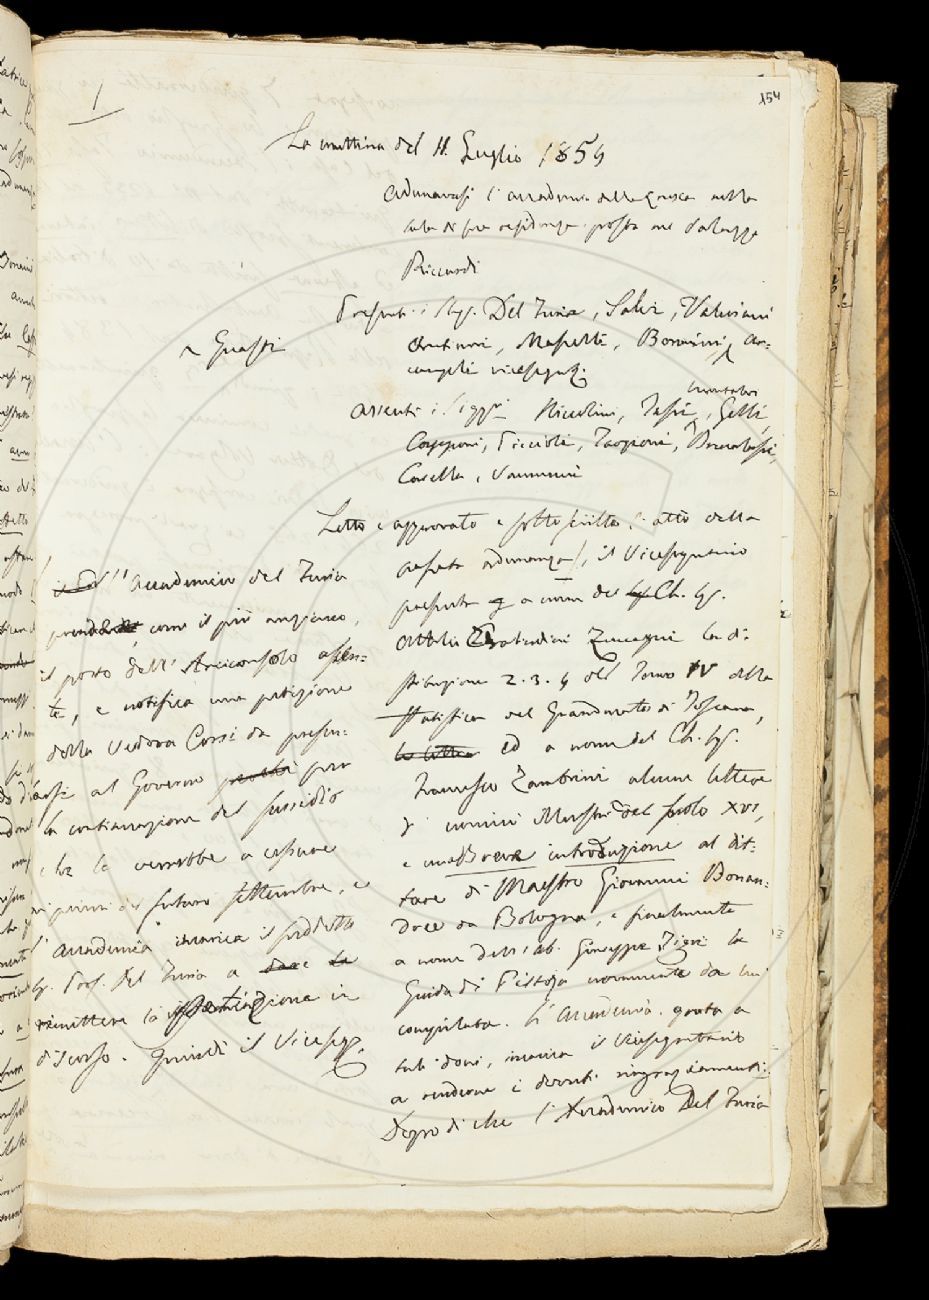 154
1
La mattina del 11. Luglio 1854
Adunavasi l'Accademia della Crusca nella
sala di sua residenza posta nel Palazzo
Riccardi
Presenti i Sigg. Del Furia, Salvi, Valeriani
Masselli, Bonaini, Ar-
cangeli vicesegr.
e Guasti
Assenti i Sigg.ri Niccolini, Tassi, Gelli,
Capponi, Piccioli, Targioni,
Casella, Vannucci
Letto e approvato e sottoscritto l'atto della
passata adunanza, il Vicesegretario
presenta a nome del Ch. Sig.
Attilio Zuccagni la di-
stribuzione 2. 3. 4 del Tomo IV della
Statistica del Granducato di Toscana,
ed a nome del Ch. Sig.
Francesco Zambrini alcune lettere
d'uomini illustri del secolo XVI,
e una Breve introduzione al dit-
tare di Maestro Giovanni Bonan-
dree da Bologna, e finalmente
a nome dell'Ab. Giuseppe Tigri la
Guida di Pistoja novamente da lui
compilata. L'Accademia grata a
tali doni, incarica il Vicesegretario
a renderne i dovuti ringraziamenti.
Dopo di che l'Accademico Del Furia
l'Accademico del Furia
come il più anziano,
il posto dell'Arciconsolo assen-
te, e notifica una petizione
della Vedova Corsi da presen-
tarsi al Governo per
la continuazione del sussidio
che le verrebbe a cessare
ai primi del futuro settembre, e
l'Accademia incarica il suddetto
Sig. Prof. Del Furia a
rimettere la petizione in
discorso. Quindi il Vicesegr.